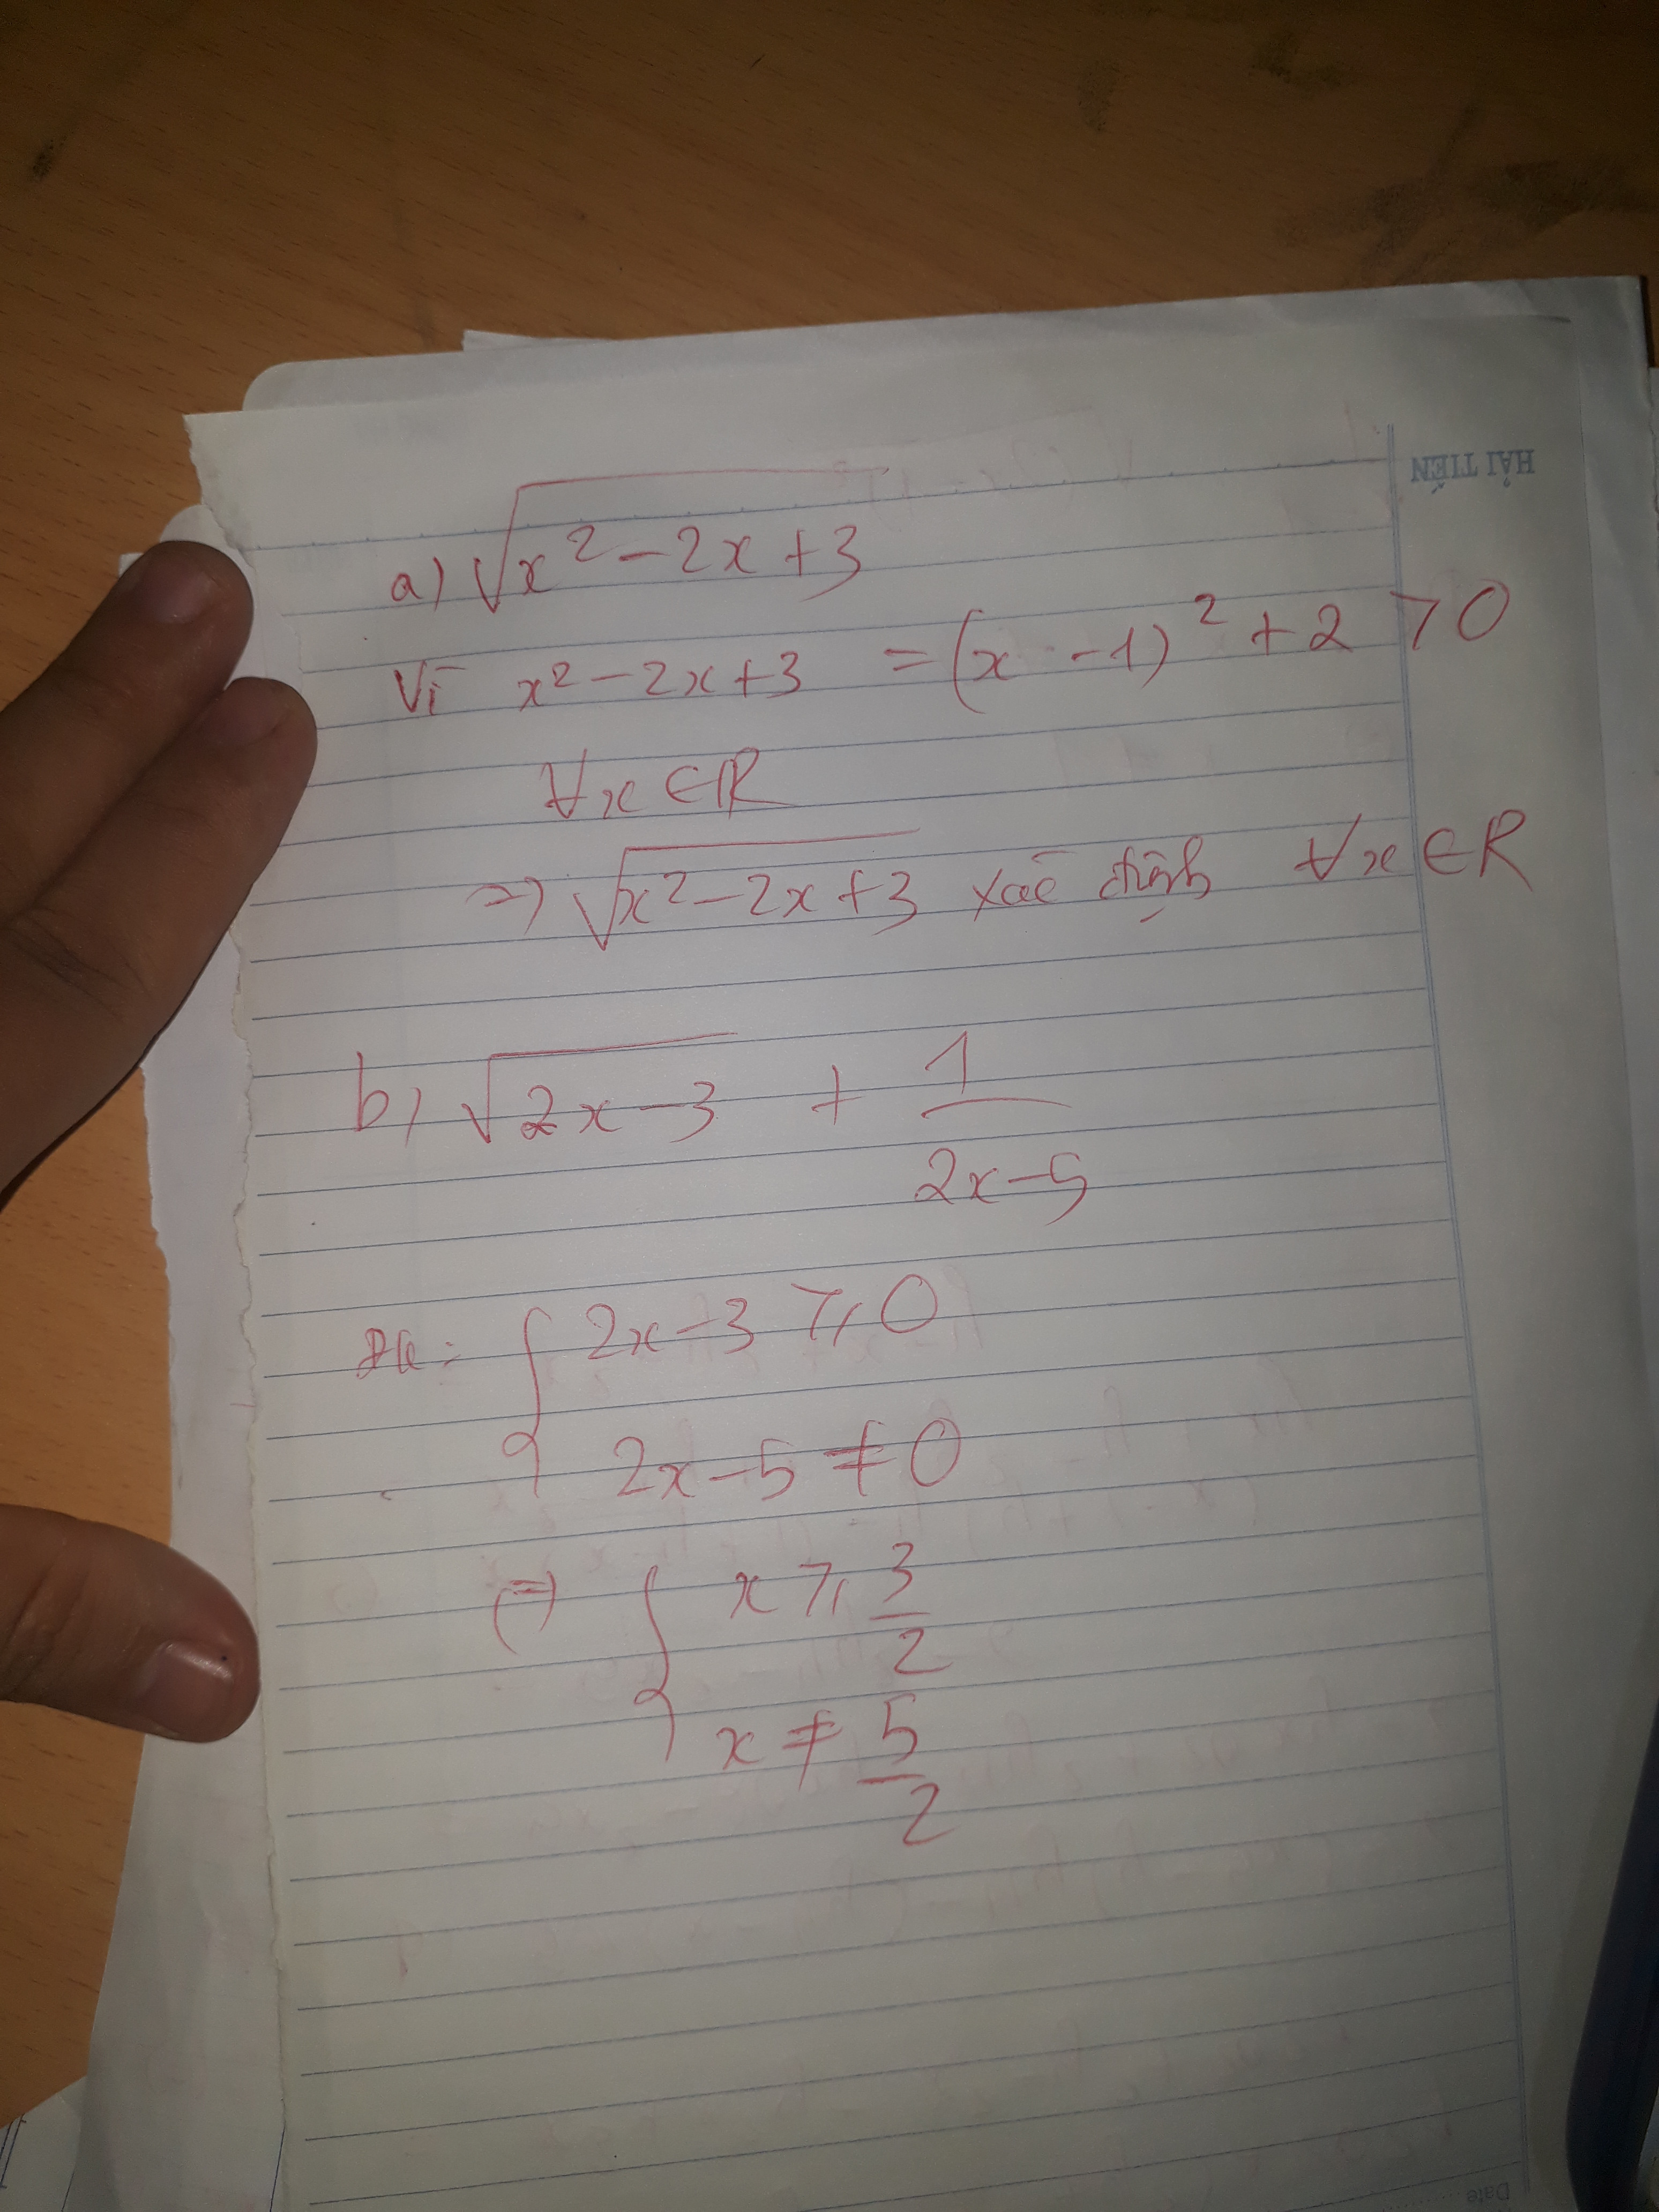 HẢI TIẾN
a) √x² - 2x + 3
Vì x² - 2x + 3 = (x - 1)² + 2 > 0
∀x ∈ R
=> √x² - 2x + 3 xác định ∀x ∈ R
b) √2x - 3 + 1/2x - 5
ĐK: { 2x - 3 ≥ 0
2x - 5 ≠ 0
(=) { x ≥ 3/2
x ≠ 5/2
Date